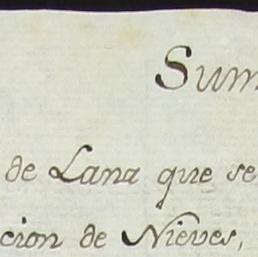 Sum
de Lana que se
cion de Nieves,